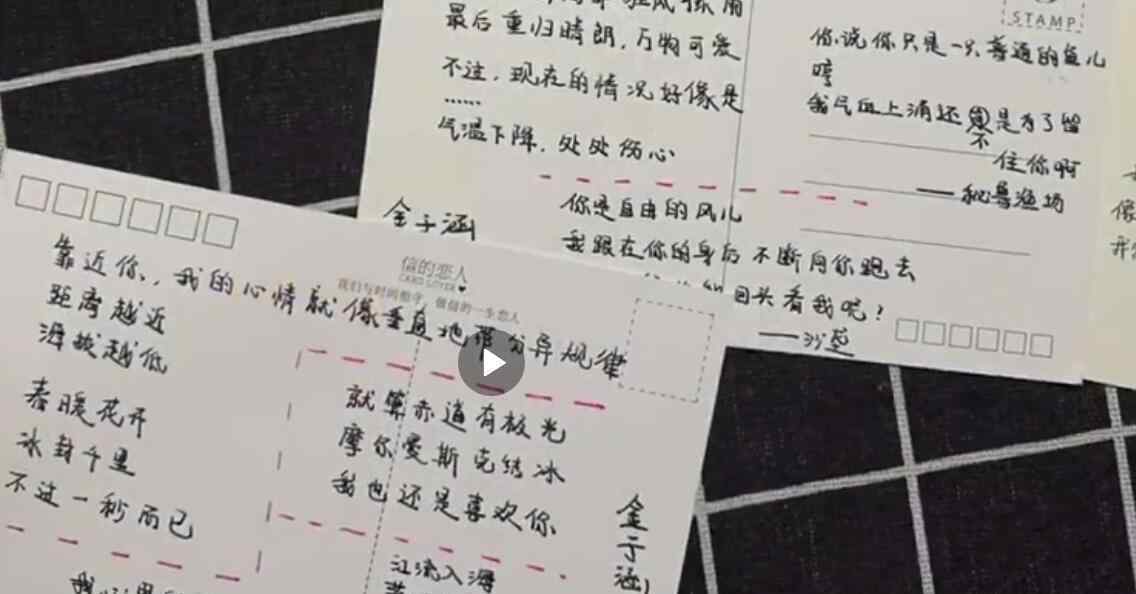 最后重归晴朗，万物可爱
不过，现在的情况好像是
……
气温下降，处处伤心
金子涵
STAMP
你说你只是一只普通的鱼儿
哼
我气血上涌还不是为了留
住你啊
——秘鲁渔场
你是自由的风儿
我跟在你的身后不断向你跑去
回头看我呢？
——沙
信的恋人
CARD LOVER
我们与时间相守，做信的一生恋人
靠近你，我的心情就像垂直地带分异规律
距离越近
海拔越低
春暖花开
冰封千里
不过一秒而已
就算赤道有极光
摩尔曼斯克结冰
我也还是喜欢你
金子涵
江流入海